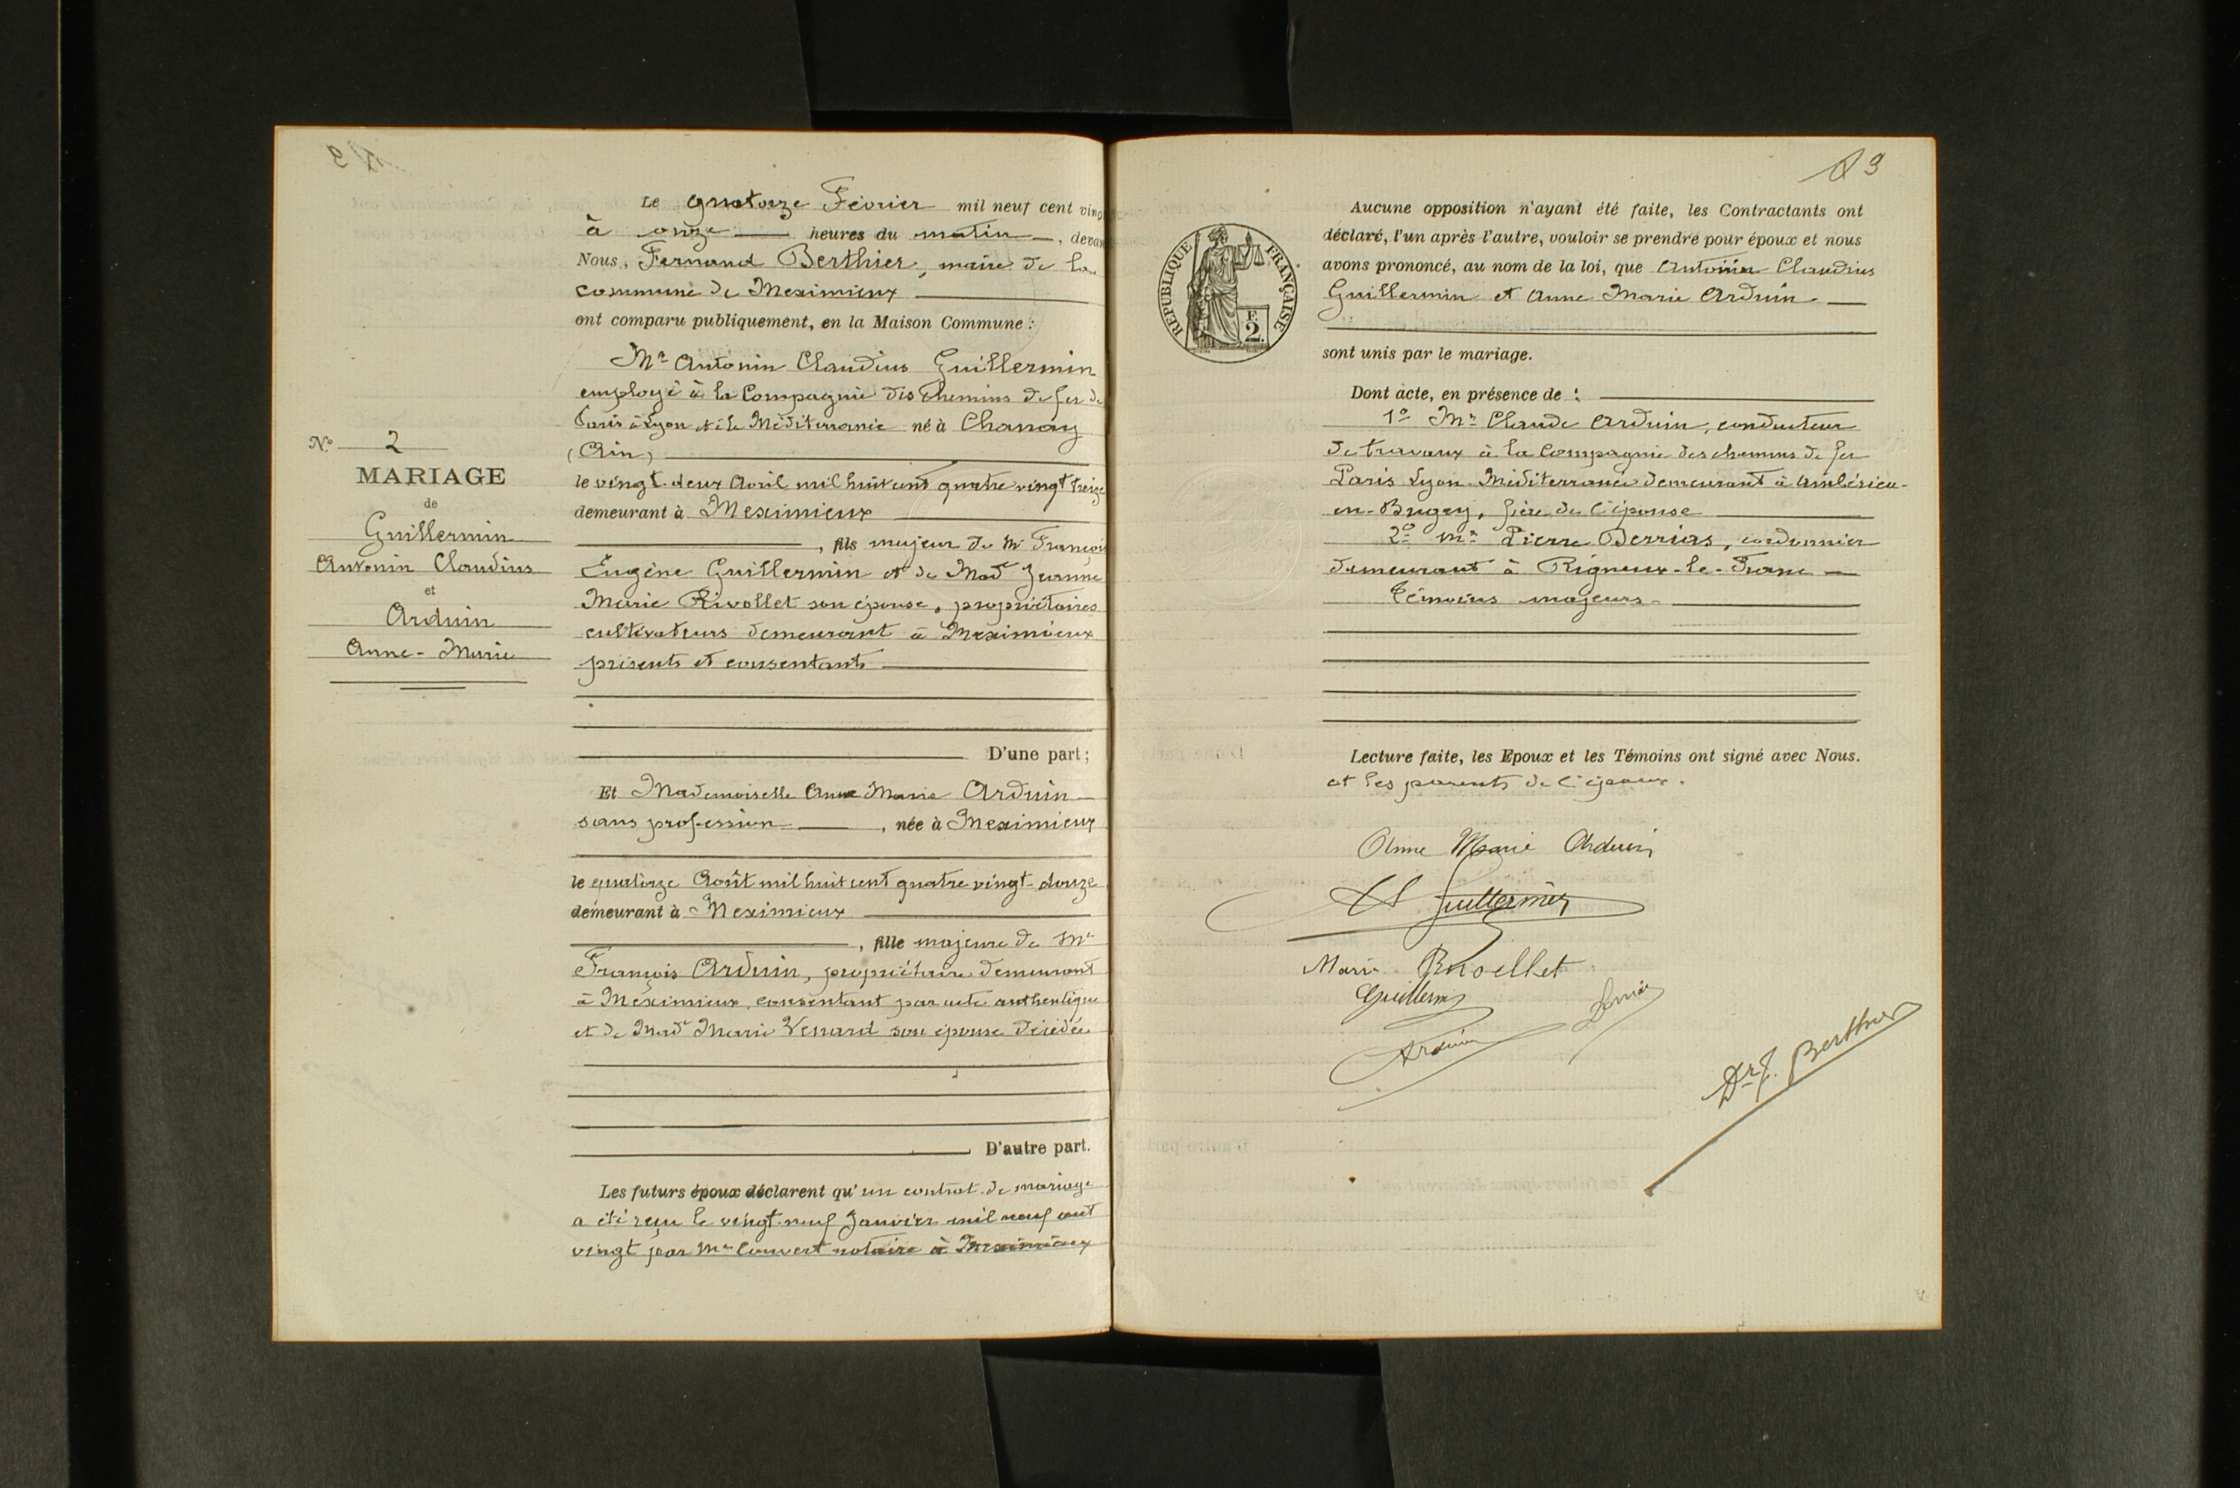 Le quatorze Février mil neuf cent vingt
à onze heures du matin, devant
Nous, Fernand Berthier, maire de la
commune de Meximieux
ont comparu publiquement, en la Maison Commune :
Mr Antonin Claudius Guillermin
employé à la Compagnie des chemins de fer de
Paris à Lyon et à la Méditerranée né à Chanay
(Ain)
le vingt-deux Avril mil huit cent quatre vingt treize
demeurant à Meximieux
, fils majeur de Mr François
Eugène Guillermin et de Made Jeanne
Marie Rivollet son épouse, propriétaires
cultivateurs demeurant à Meximieux
présents et consentants
D'une part ;
Et Mademoiselle Anne Marie Arduin
sans profession, née à Meximieux
le quatorze Août mil huit cent quatre vingt-douze
demeurant à Meximieux
, fille majeure de Mr
François Arduin, propriétaire demeurant
à Meximieux, consentant par acte authentique
et de Made Marie Venard son épouse décédée
D'autre part.
Les futurs époux déclarent qu'un contrat de mariage
a été reçu le vingt-neuf Janvier mil neuf cent
vingt par Me Convert notaire à Meximieux
No 2
MARIAGE
de
Guillermin
Antonin Claudius
et
Arduin
Anne-Marie
3
RÉPUBLIQUE FRANÇAISE
F.
2.
Aucune opposition n'ayant été faite, les Contractants ont
déclaré, l'un après l'autre, vouloir se prendre pour époux et nous
avons prononcé, au nom de la loi, que Antonin Claudius
Guillermin et Anne Marie Arduin
sont unis par le mariage.
Dont acte, en présence de :
1o Mr Claude Arduin, conducteur
de travaux à la Compagnie des chemins de fer
Paris Lyon Méditerranée demeurant à Ambérieu-
en-Bugey, frère de l'épouse
2o Mr Pierre Berrias, cordonnier
demeurant à Rigneux-le-Franc
Témoins majeurs
Lecture faite, les Epoux et les Témoins ont signé avec Nous.
et les parents de l'époux.
Anne Marie Arduin
Guillermin
Marie Rivollet
Guillermin
Arduin
Dr F. Berthier